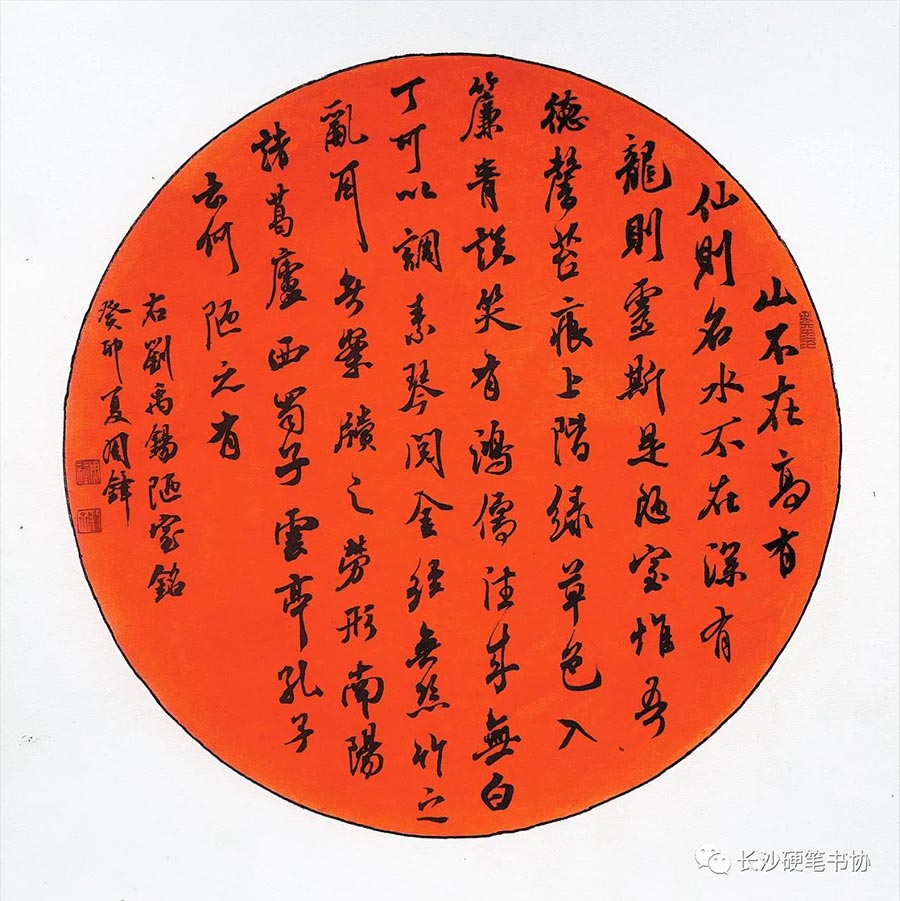 山不在高有
仙則名水不在深有
龍則靈斯是陋室惟吾
德馨苔痕上階綠草色入
簾青談笑有鴻儒往來無白
丁可以調素琴閱金經無絲竹之
亂耳無案牘之勞形南陽
諸葛廬西蜀子雲亭孔子
云何陋之有
右劉禹錫陋室銘
癸卯夏周鋒
长沙硬笔书协